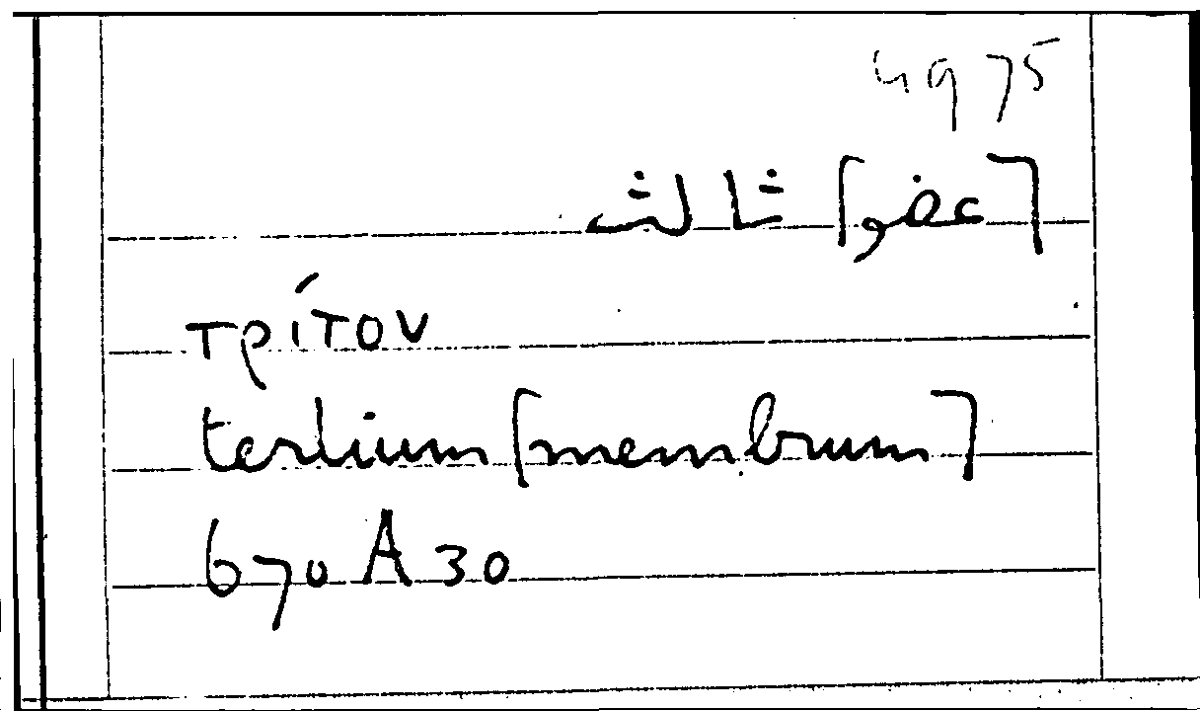 4975
[عضو] ثالث
τρίτον
tertium [membrum]
670 A 30